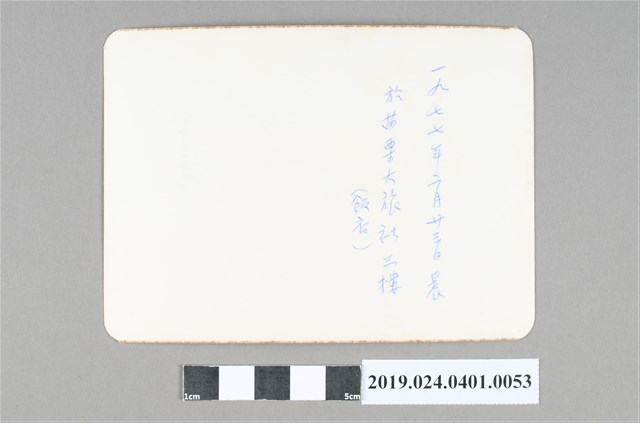 一九七七年二月廿三日晨
於苗栗大旅社三樓
(飯店)
1cm
5cm
2019.024.0401.0053